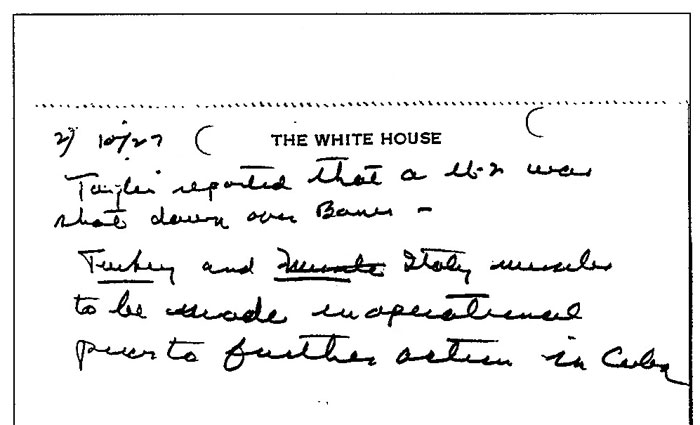 2) 10/27 THE WHITE HOUSE
Taylor reported that a U-2 was
shot down over Banes -
Turkey and Italy missiles
to be made inoperational
prior to further action in Cuba